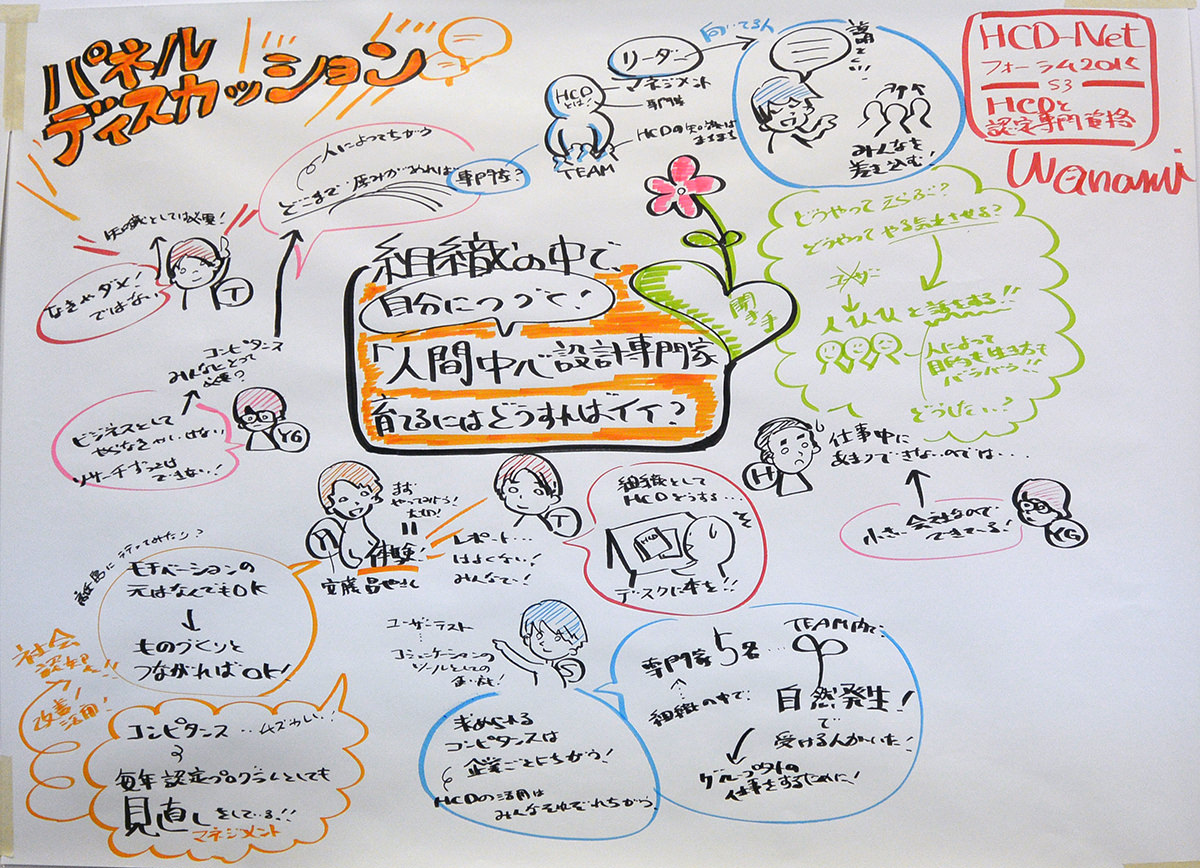 パネル
ディスカッション
HCD-Net
フォーラム2015
S3
HCDと
認定専門資格
Wanami
リーダー
向いてる人
マネジメント
専門家
HCD
とは!
HCDの知識は
TEAM
みんなを
巻き込む!
人によってちがう
どこまで 厚みがあれば
専門家?
知識としては必要!
なきゃダメ!
ではない
T
コンピタンス
みんなにとって
必要?
ビジネスとして
やらなきゃいけない
リサーチずっとは
できない!
YG
組織の中で、
自分につづて!
「人間中心設計専門家
育てるにはどうすればイイ?
聞き手
どうやって
どうやってやる気にさせる?
ユーザー
人仏仏と話をする!!
人によって
目的も生き方も
バラバラ!!
どうしたい?
H
仕事中に
あまりできないのでは・・・・
小さい会社なので
できている!
YG
まず
やってみよう!
大切!
体験!
安藤昌也さん
T
レポート…
はよくない!
みんなで!
組織として
HCDどうする…
HCD
デスクに本を!!
モチベーションの
元はなんでもOK
↓
ものづくりと
つながればOK!
社会
認知へ!!
改善!
活用!
コンピタンス…
毎年認定プログラムとしても
見直しをしている!!
マネジメント
ユーザーテスト
コミュニケーションの
ツールとしての
S
求められる
コンピタンスは
企業ごとにちがう!
HCDの活用は
みんなそれぞれちがう
専門家5名…
組織の中で、
TEAM内で
自然発生!
で
受ける人がいた!
グループ外の
仕事をするために!